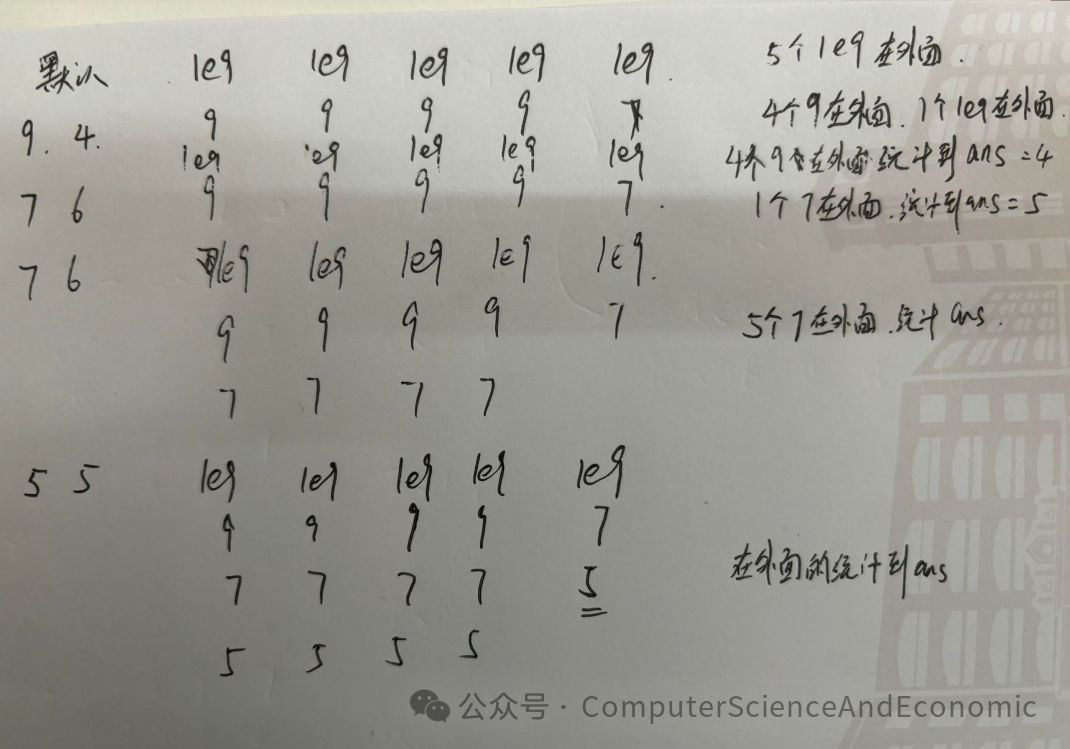 默认 1e9 1e9 1e9 1e9 1e9. 5个1e9在外面.
9. 4. 9 9 9 9 4个9在外面. 1个1e9在外面.
1e9 1e9 1e9 1e9 1e9 4个9在外面 统计到ans=4
7 6 9 9 9 9 7 1个7在外面. 统计到ans=5
7 6 1e9 1e9 1e9 1e9 1e9.
9 9 9 9 7 5个7在外面. 统计ans.
7 7 7 7
5 5 1e9 1e9 1e9 1e9 1e9
9 9 9 9 7
在外面的统计到ans
7 7 7 7 5
5 5 5 5
公众号 · ComputerScienceAndEconomic